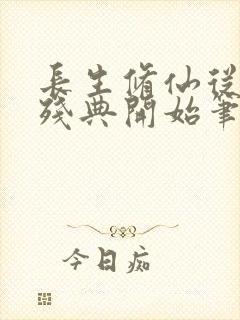 長生脩仙從
殘典開始筆
今日痴